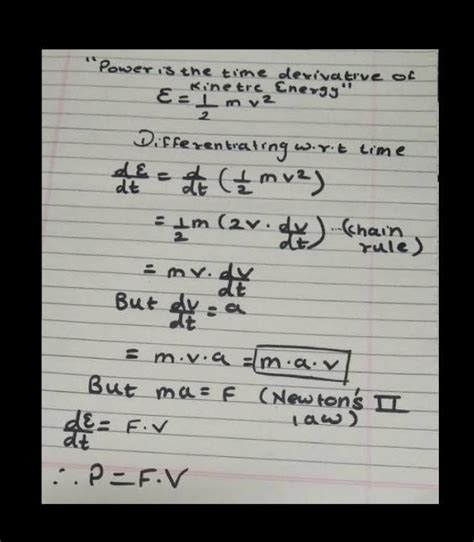 "Power is the time derivative of
Kinetic Energy"
ℰ = 1/2 m v²
Differentiating w.r.t time
dℰ/dt = d/dt (1/2 m v²)
= 1/2 m (2v · dv/dt) ...(chain rule)
= m v · dv/dt
But dv/dt = a
= m · v · a = m · a · v
But ma = F (Newton's II law)
dℰ/dt = F · V
∴ P = F · V